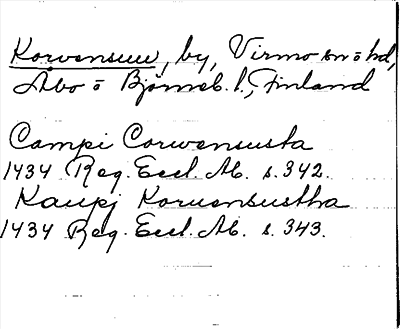 Korvensuu, by, Virmo sn o hd,
Åbo o Björneb. l., Finland
Campi Corwensusta
1434 Reg. Eccl. Ab. s. 342.
Kaupj Koruensustha
1434 Reg. Eccl. Ab. s. 343.